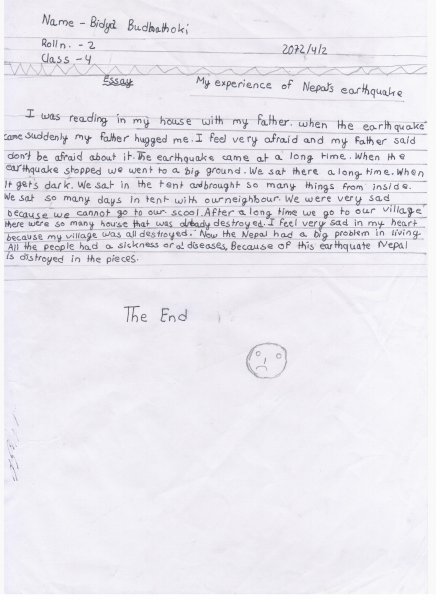 Name - Bidya Budhathoki
Roll n. - 2
2072/4/2
Class - 4
Essay
My experience of Nepal's earthquake
I was reading in my house with my father. when the earthquake
came suddenly my father hugged me. I feel very afraid and my father said
don't be afraid about it. The earthquake came at a long time. When the
earthquake stopped we went to a big ground. We sat there a long time. When
it gets dark. We sat in the tent and brought so many things from inside.
We sat so many days in tent with our neighbour. We were very sad
because we cannot go to our scool. After a long time we go to our village
there were so many house that was already destroyed. I feel very sad in my heart
because my village was all destroyed. Now the Nepal had a big problem in living
All the people had a sickness or diseases, Because of this earthquate Nepal
is distroyed in the pieces.
The End